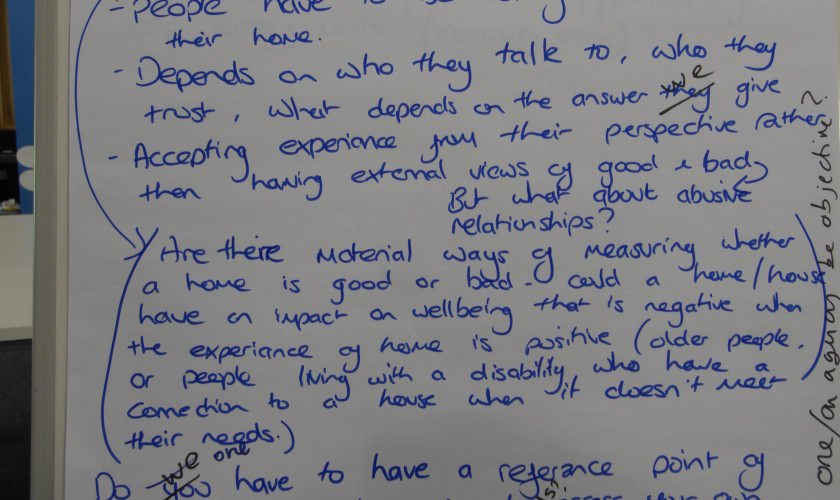 - People have to
their home.
- Depends on who they talk to, who they
trust, what depends on the answer they we give
- Accepting experience from their perspective rather
then having external views of good & bad
But what about abusive
relationships?
Are there material ways of measuring whether
a home is good or bad - could a home/house
have an impact on wellbeing that is negative when
the experiance of home is positive (older people,
or people living with a disability, who have a
connection to a house when it doesn't meet
their needs.)
Do you we one have to have a referance point of
one/an be objective?